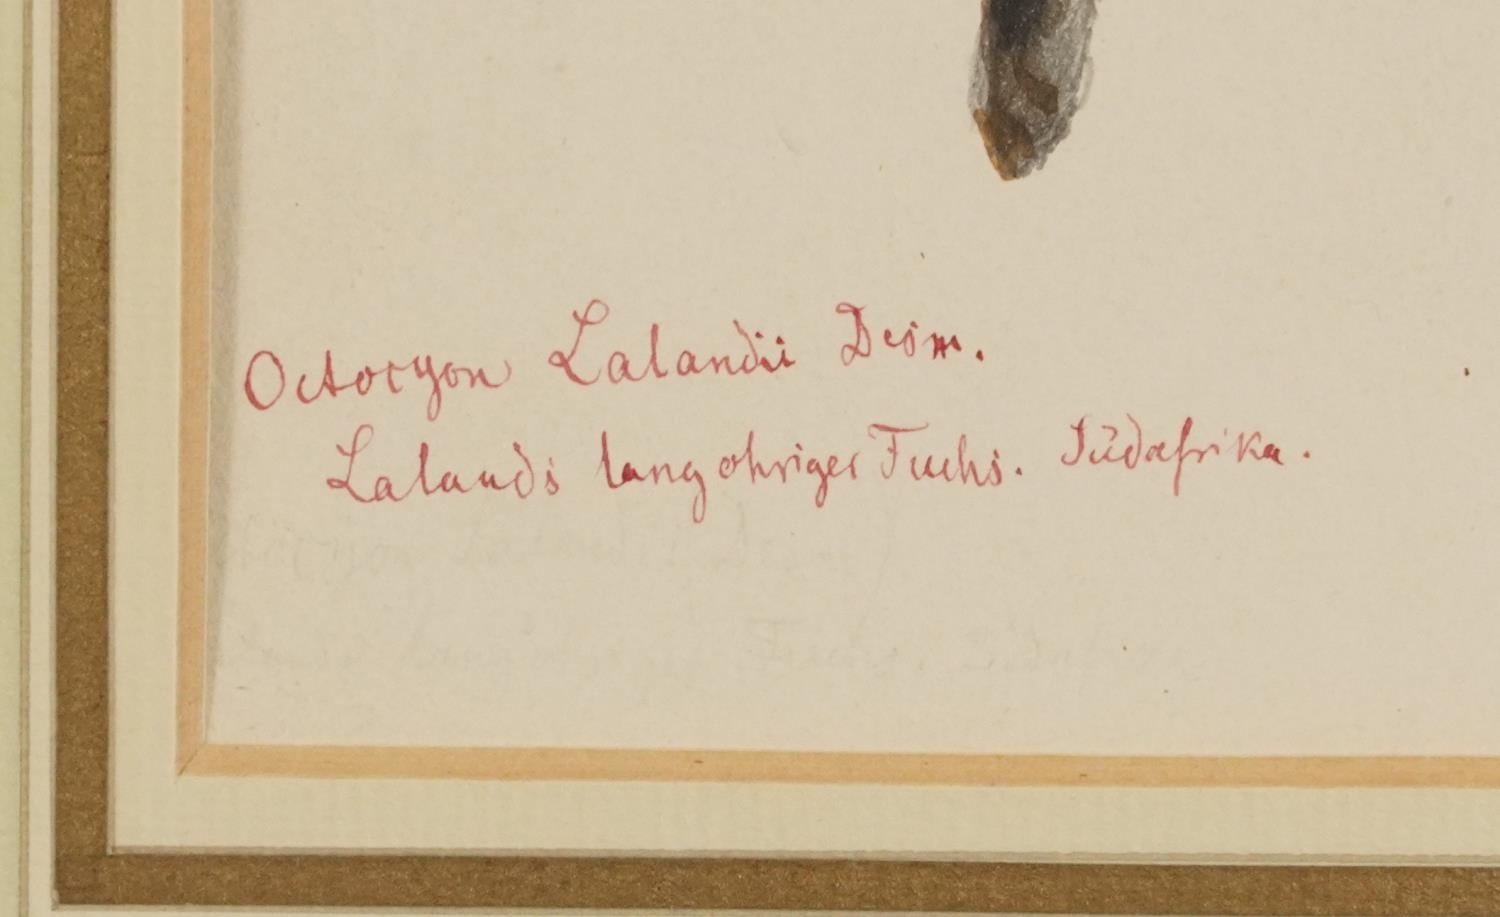 Octocyon Lalandii Desm.
Lalands langohriger Fuchs. Südafrika.